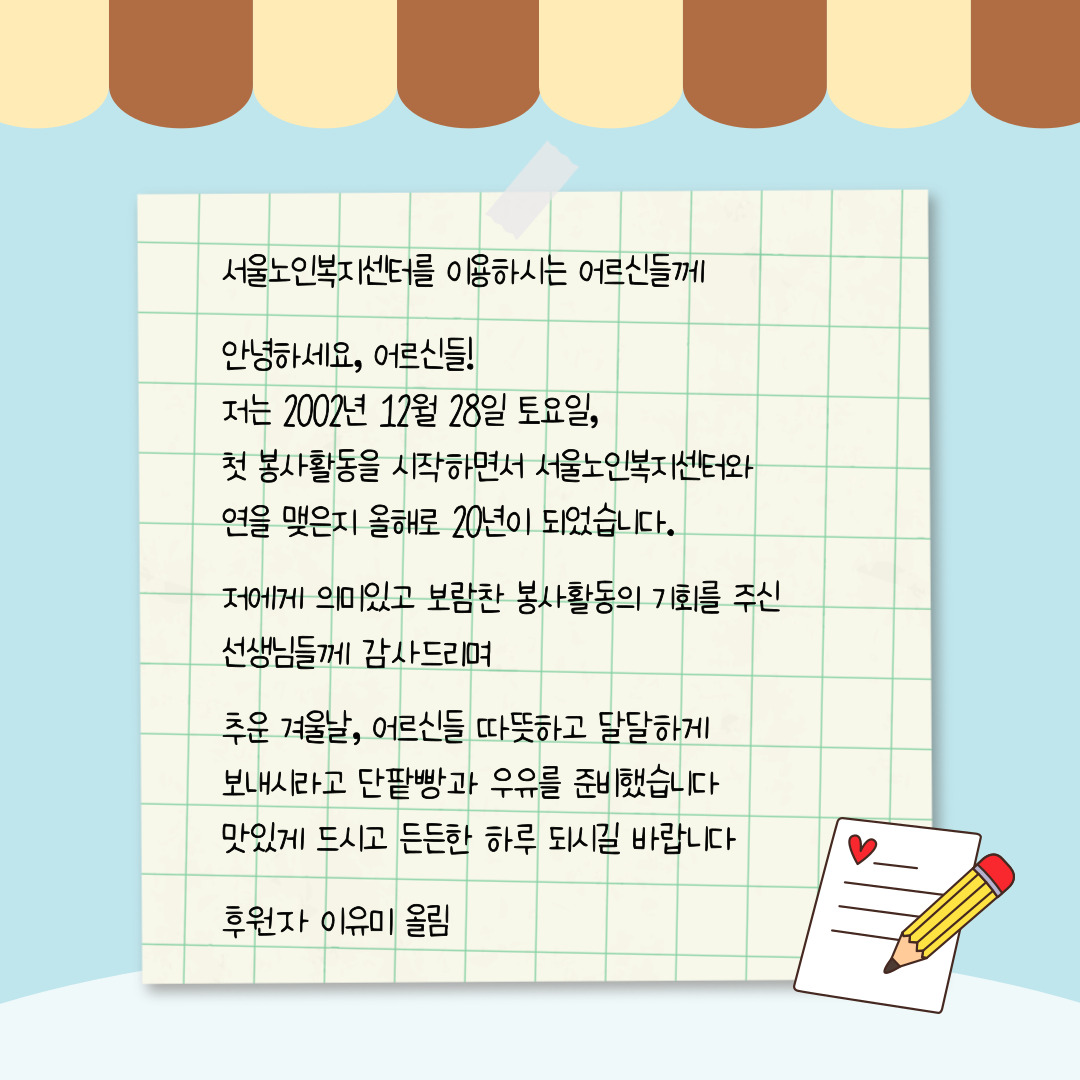 서울노인복지센터를 이용하시는 어르신들께
안녕하세요, 어르신들!
저는 2002년 12월 28일 토요일,
첫 봉사활동을 시작하면서 서울노인복지센터와
연을 맺은지 올해로 20년이 되었습니다.
저에게 의미있고 보람찬 봉사활동의 기회를 주신
선생님들께 감사드리며
추운 겨울날, 어르신들 따뜻하고 달달하게
보내시라고 단팥빵과 우유를 준비했습니다
맛있게 드시고 든든한 하루 되시길 바랍니다
후원자 이유미 올림